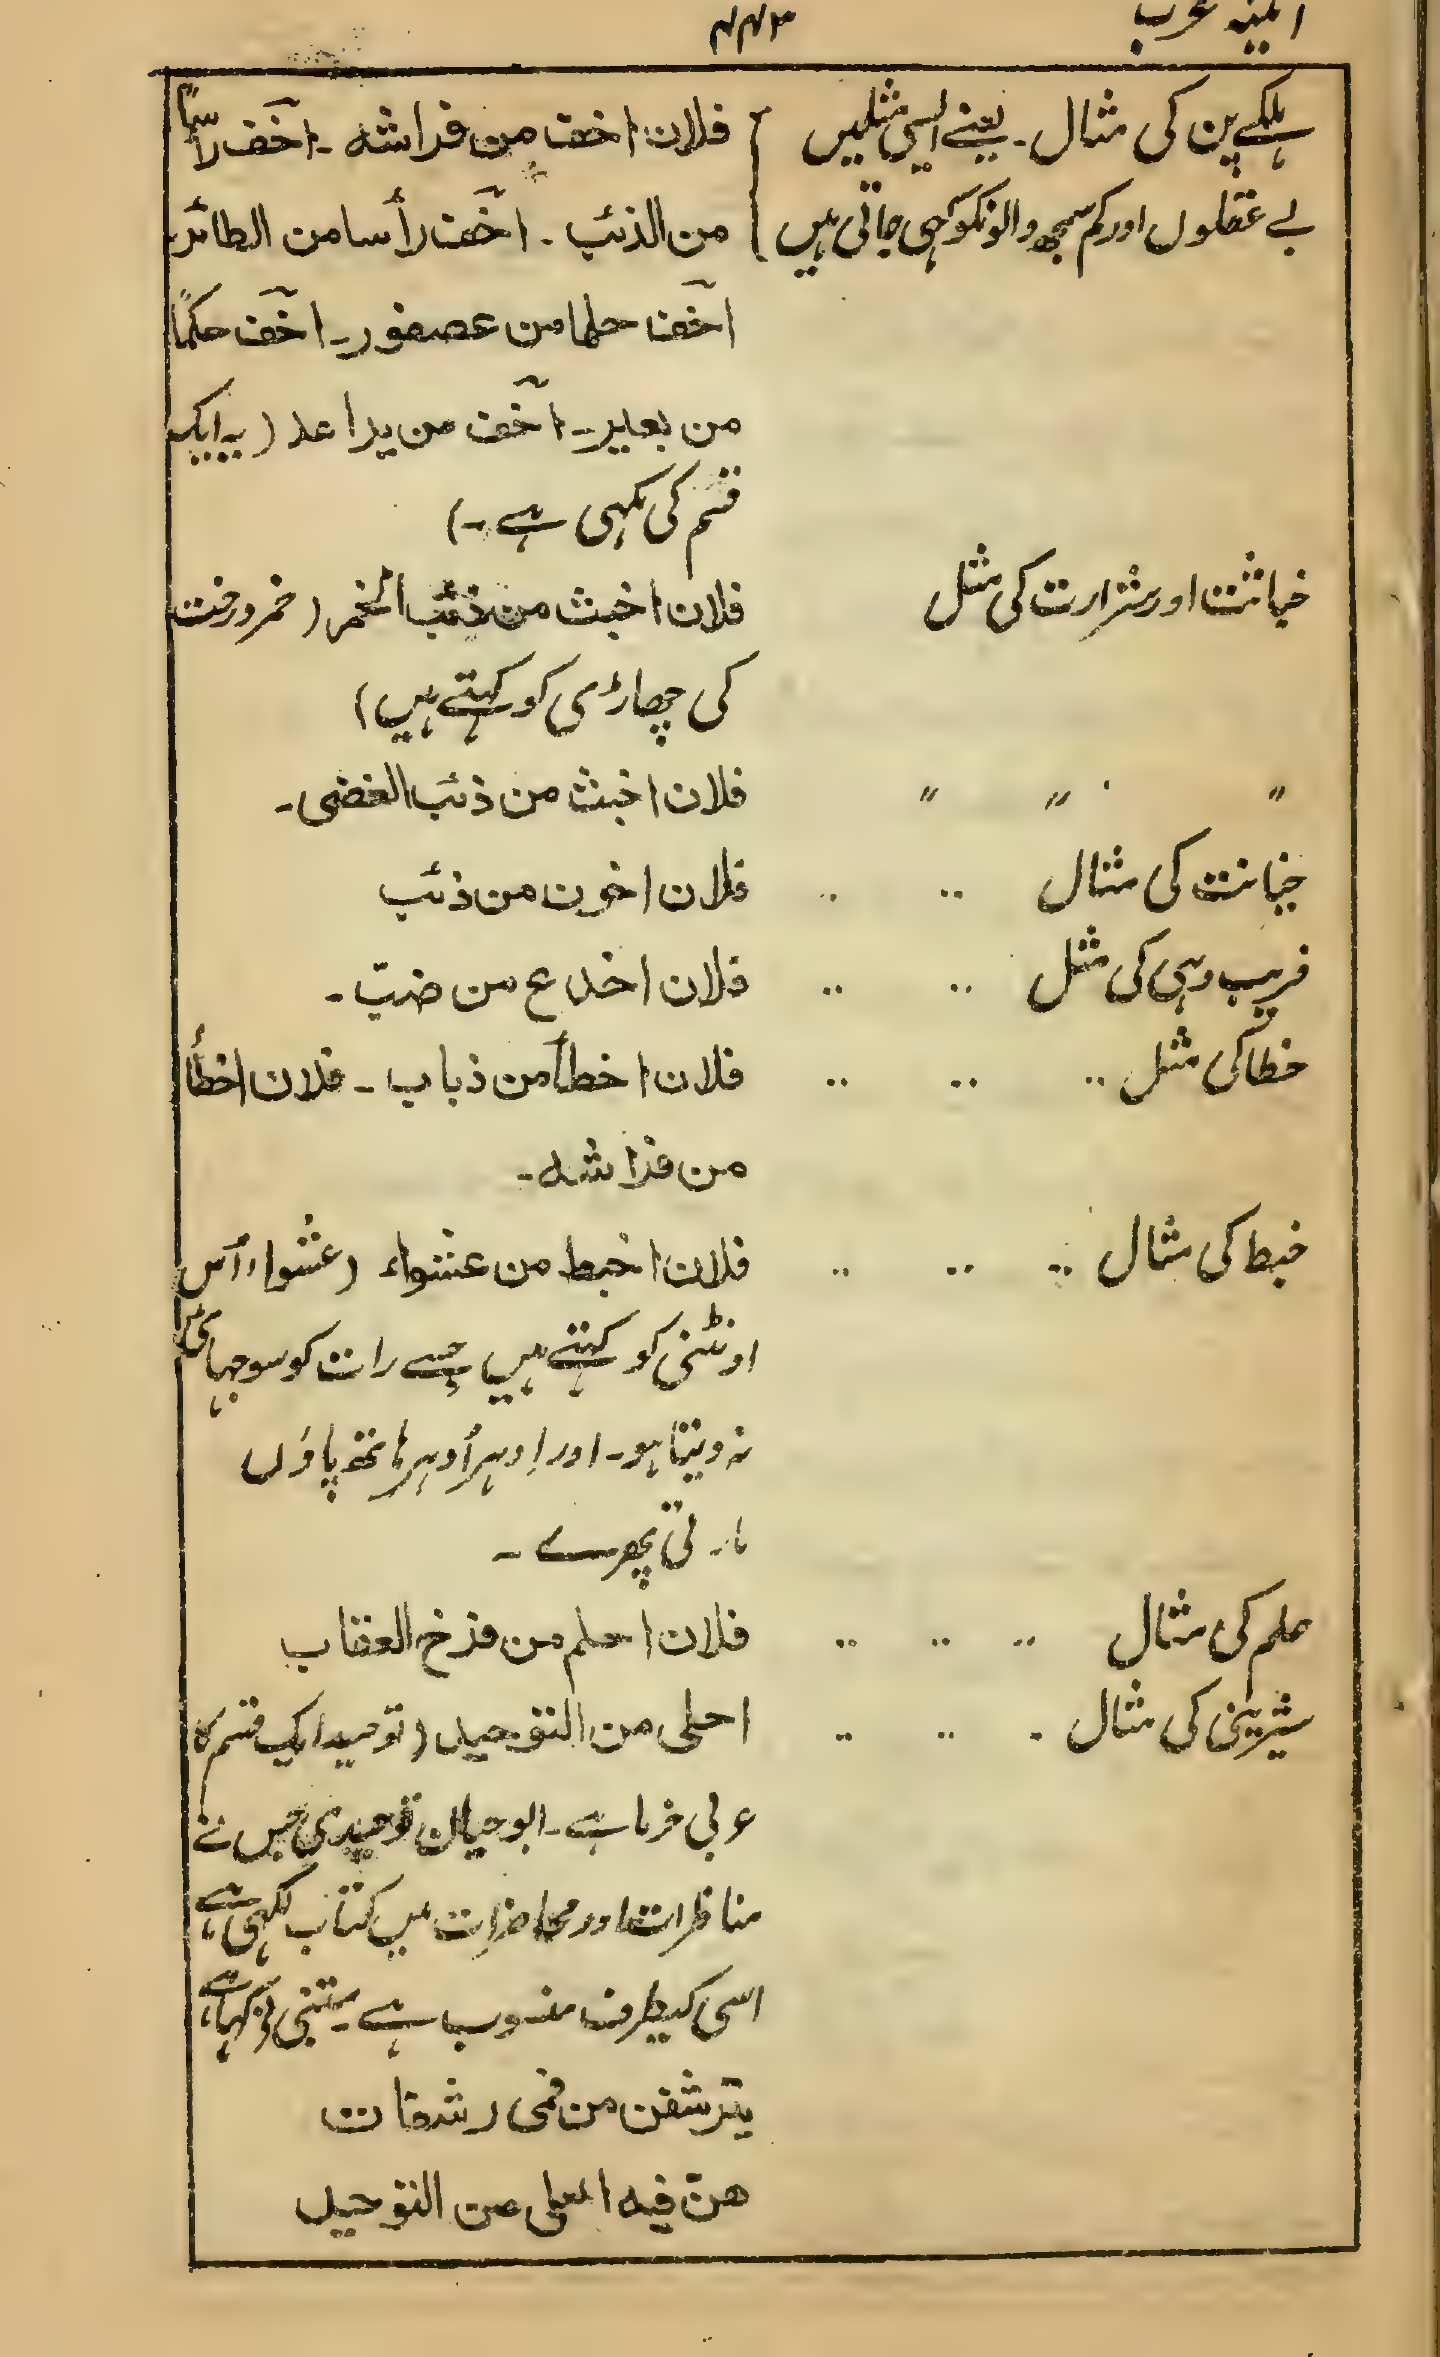 آئینہ عرب
۴۴۳
ہلکے پن کی مثال۔ یعنے ایسی مثلیں } فلان اخف من فراشہ۔ اخف رأسًا
بے عقلوں اور کم سمجھ والونکو کہی جاتی ہیں } من الذئب۔ اخف رأسا من الطائر
اخف حلما من عصفور۔ اخف حکمًا
من بعیر۔ اخف من یراعہ (یہ ایک
قسم کی مکہی ہے۔)
خباثت اور شرارت کی مثل فلان اخبث من ذئب الخمر (خمر درخت
کی جھاڑی کو کہتے ہیں)
〃 〃 〃 فلان اخبث من ذئب الغضی۔
خیانت کی مثال .. .. فلان اخون من ذئب
فریب دہی کی مثل .. .. فلان اخدع من ضبّ۔
خطا کی مثل .. .. .. فلان اخطأ من ذباب۔ فلان اخطأ
من فراشہ۔
خبط کی مثال .. .. .. فلان اخبط من عشواء (عشواء اُس
اونٹنی کو کہتے ہیں جسے رات کو سوجہائی
نہ دیتا ہو۔ اور اِدہر اُدہر ہاتھ پاؤں
مارتی پھرے۔
حلم کی مثال .. .. .. فلان احلم من فرخ العقاب
شیرینی کی مثال . .. .. احلی من التوحید (توحید ایک قسم کا
عربی خرما ہے۔ ابوحیان توحیدی جس نے
مناظرات اور محاضرات میں کتاب لکہی ہے
اسی کیطرف منسوب ہے۔ متنبی نے کہا ہے
یترشفن من فمی رشفات
هنّ فیه احلی من التوحید